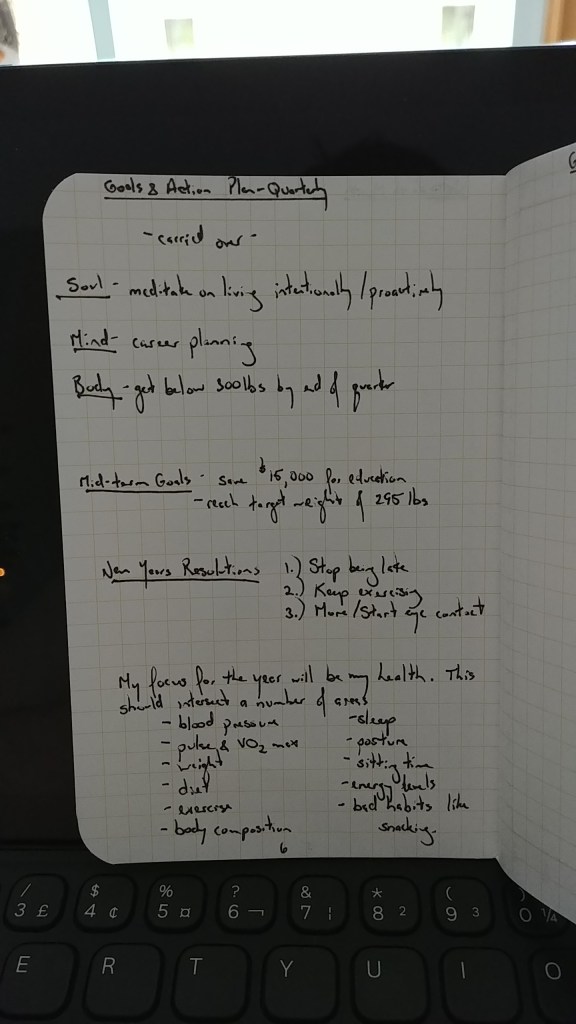 Goals & Action Plan-Quarterly
- carried over -
Soul - meditate on living intentionally/proactively
Mind- career planning
Body - get below 300lbs by end of quarter
Mid-term Goals - save $15,000 for education
- reach target weight of 295 lbs
New Years Resolutions 1.) Stop being late
2.) Keep exercising
3.) More/Start eye contact
My focus for the year will be my health. This
should intersect a number of areas
- blood pressure
- pulse & VO2 max
- weight
- diet
- exercise
- body composition
- sleep
- posture
- sitting time
- energy levels
- bad habits like
snacking.
6
G
/ $ % ? & * ( )
3 £ 4 ¢ 5 ¤ 6 ¬ 7 ¦ 8 2 9 3 0 ¼
E R T Y U I O